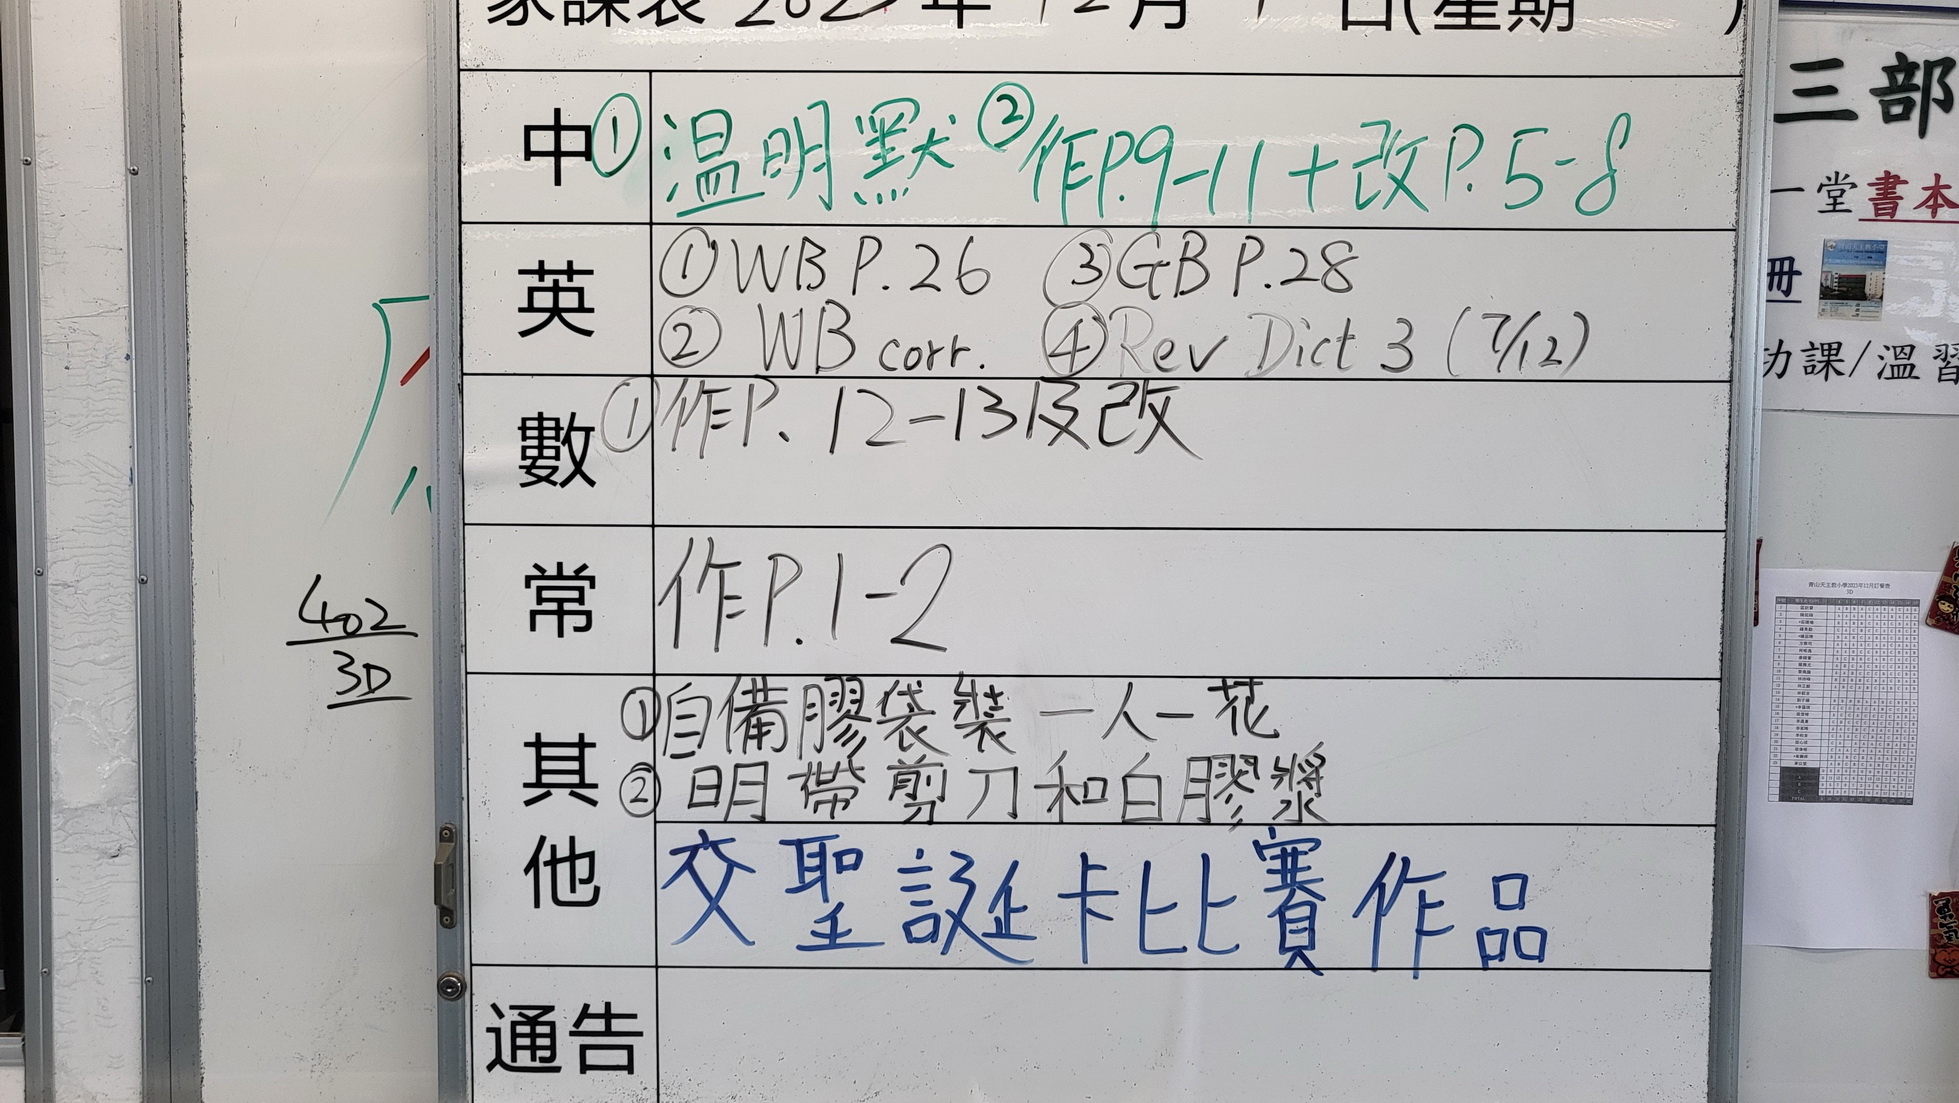 家課表 2023年 12月 日(星期 )
中 ①温明默 ②作P.9-11+改P.5-8
英 ①WB P.26 ③GB P.28
② WB corr. ④Rev Dict 3 (7/12)
數 ①作P. 12-13及改
常 作P.1-2
其他 ①自備膠袋裝一人一花
②明帶剪刀和白膠漿
交聖誕卡比賽作品
通告
402
3D
三部
一堂書本
冊
功課/溫習
青山天主教小學2023年12月訂餐表
3D